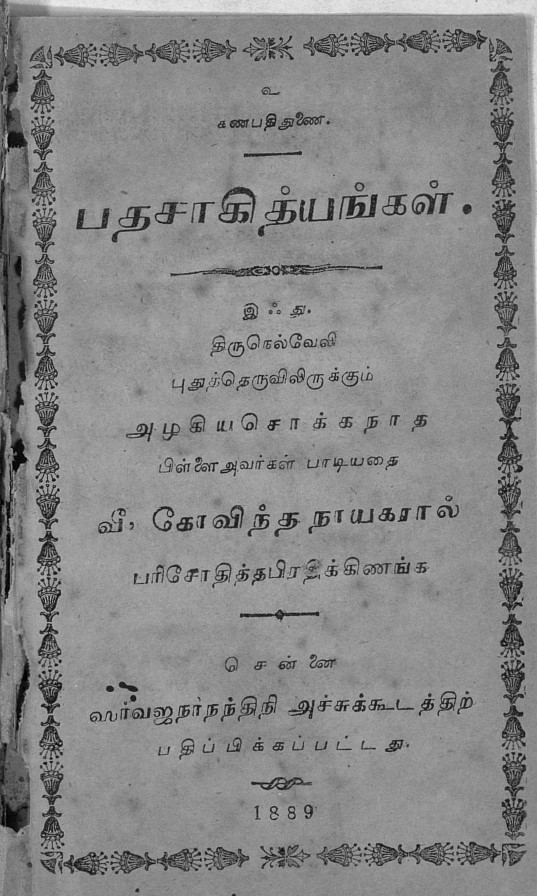 உ
கணபதிதுணை.
பதசாகித்யங்கள்.
இஃது.
திருநெல்வேலி
புதுத்தெருவிலிருக்கும்
அழகியசொக்கநாத
பிள்ளைஅவர்கள் பாடியதை
வீ, கோவிந்தநாயகரால்
பரிசோதித்தபிரதிக்கிணங்க
சென்னை
ஸர்வஜநாநந்திநி அச்சுக்கூடத்திற்
பதிப்பிக்கப்பட்டது.
1889